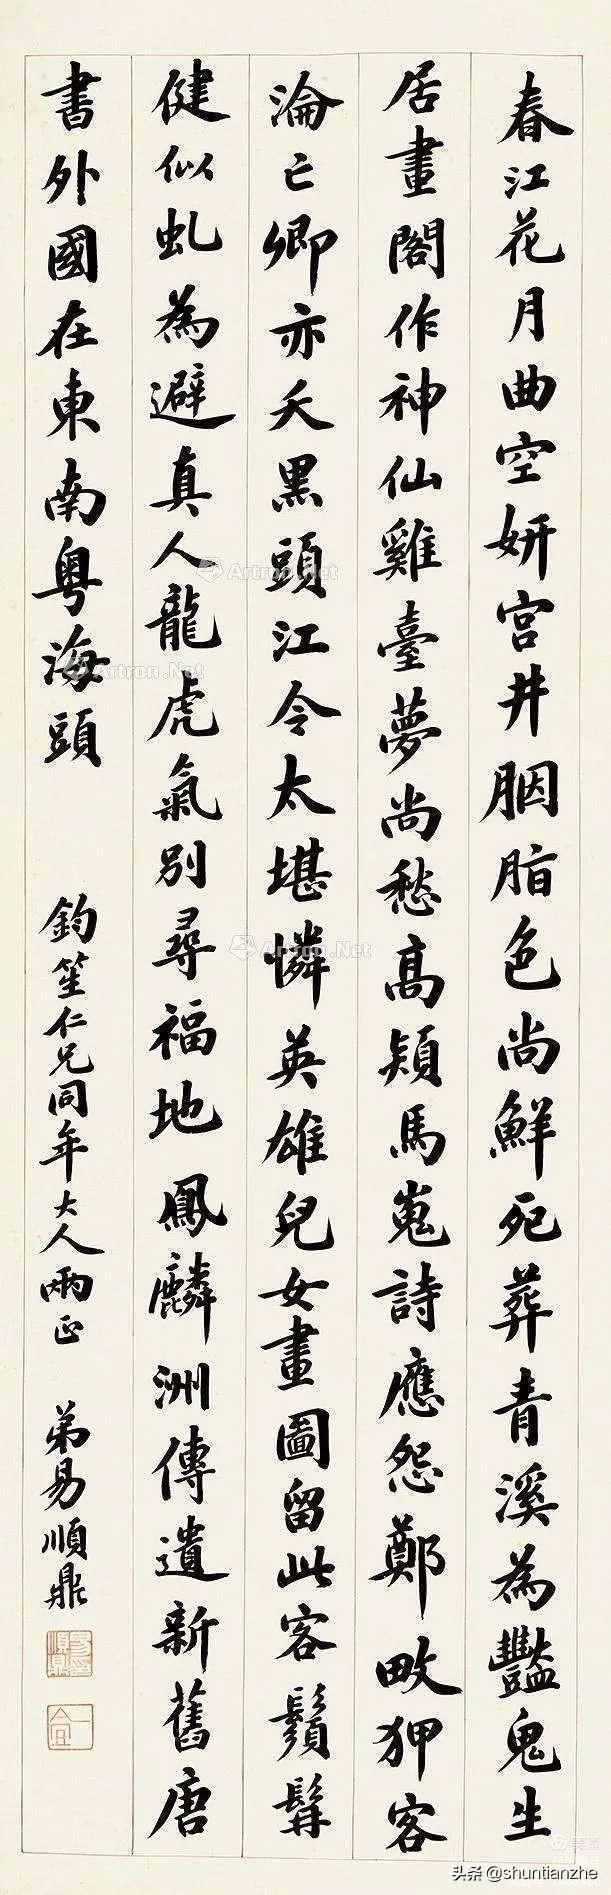 春江花月曲空妍宮井胭脂色尚鮮死葬青溪為豔鬼生
居畫閣作神仙雞臺夢尚愁高熲馬嵬詩應怨鄭畋狎客
淪亡卿亦夭黑頭江令太堪憐英雄兒女畫圖留此客鬚髯
健似虬為避真人龍虎氣別尋福地鳳麟洲傳遺新舊唐
書外國在東南粵海頭
鈞笙仁兄同年大人兩正
弟易順鼎
Artron.Net
Artron.Net
Artron.Net
头条@shuntianzhe